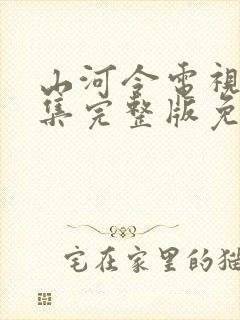 山河令電視
集完整版免
宅在家里的猫